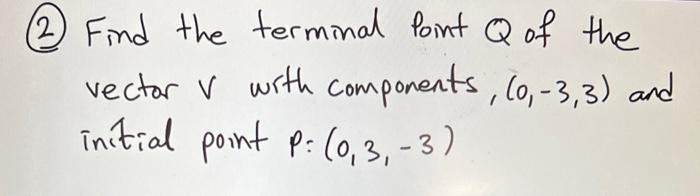 ② Find the terminal Point Q of the
vector v with components, (0,-3,3) and
initial point P: (0,3,-3)